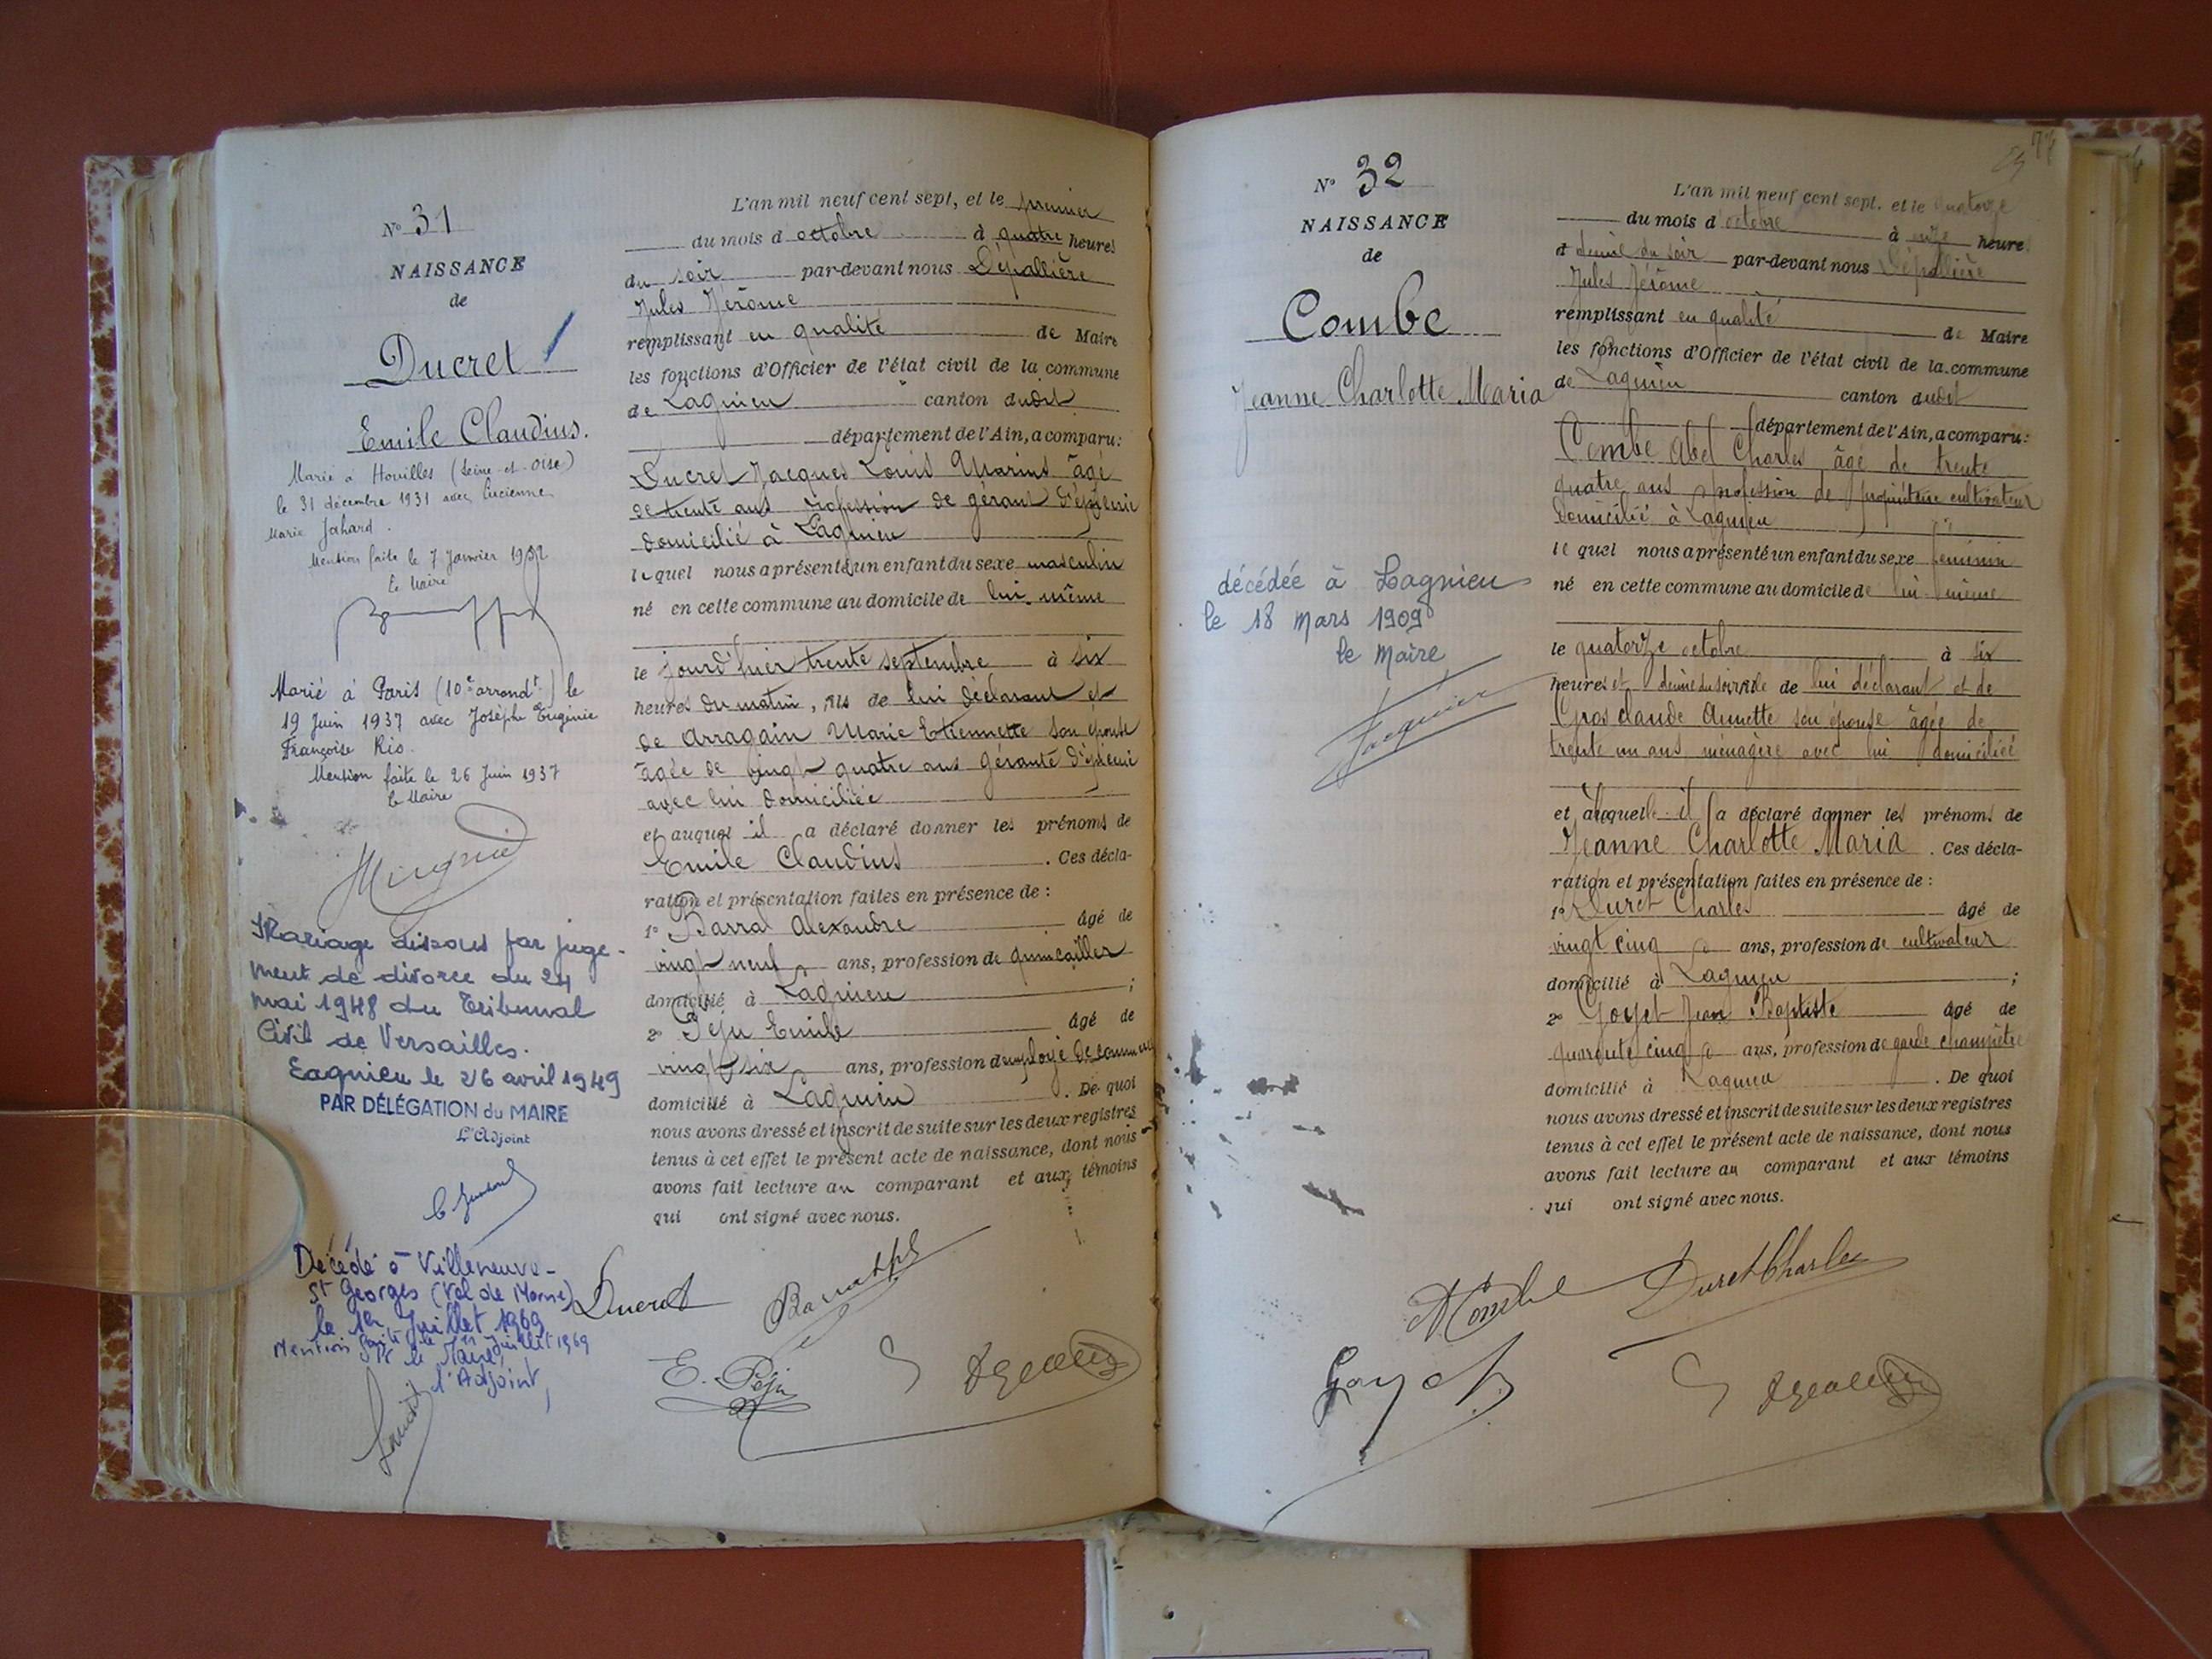 N° 31
NAISSANCE
de
Ducret
Emile Claudius.
Marié à Houilles (Seine-et-Oise)
le 31 décembre 1931 avec Lucienne
Marie Jahard.
Mention faite le 7 Janvier 1932
Le Maire
Marié à Paris (10e arrondt) le
19 Juin 1937 avec Josèphe Eugénie
Françoise Rio.
Mention faite le 26 Juin 1937
Le Maire
Mariage dissous par juge-
ment de divorce du 24
mai 1948 du Tribunal
Civil de Versailles.
Lagnieu le 26 avril 1949
PAR DÉLÉGATION du MAIRE
L'Adjoint
Décédé à Villeneuve-
St Georges (Val de Marne)
le 1er Juillet 1969
Mention faite le 11 Juillet 1969
le Maire,
l'Adjoint,
L'an mil neuf cent sept, et le premier
du mois d octobre à quatre heures
du soir par-devant nous Dépallière
Jules Jérôme
remplissant en qualité de Maire
les fonctions d'Officier de l'état civil de la commune
de Lagnieu canton dudit
département de l'Ain, a comparu:
Ducret Jacques Louis Marius âgé
de trente ans profession de gérant d'épicerie
domicilié à Lagnieu
lequel nous a présenté un enfant du sexe masculin
né en cette commune au domicile de lui-même
le jourd'hier trente septembre à six
heures du matin, fils de lui déclarant et
de Arragain Marie Etiennette son épouse
âgée de vingt-quatre ans gérante d'épicerie
avec lui domiciliée
et auquel il a déclaré donner les prénoms de
Emile Claudius . Ces décla-
ration et présentation faites en présence de :
1° Barral Alexandre âgé de
vingt-neuf ans, profession de quincailler
domicilié à Lagnieu ;
2° Péju Emile âgé de
vingt-six ans, profession d employé de commerce
domicilié à Lagnieu . De quoi
nous avons dressé et inscrit de suite sur les deux registres
tenus à cet effet le présent acte de naissance, dont nous
avons fait lecture au comparant et aux témoins
qui ont signé avec nous.
Ducret
E. Péju
N° 32
NAISSANCE
de
Combe
Jeanne Charlotte Maria
décédée à Lagnieu
le 18 Mars 1909
le Maire
L'an mil neuf cent sept, et le quatorze
du mois d octobre à onze heures
et demie du soir par-devant nous Dépallière
Jules Jérôme
remplissant en qualité de Maire
les fonctions d'Officier de l'état civil de la commune
de Lagnieu canton dudit
département de l'Ain, a comparu:
Combe Abel Charles âgé de trente
quatre ans profession de propriétaire cultivateur
domicilié à Lagnieu
lequel nous a présenté un enfant du sexe féminin
né en cette commune au domicile de lui-même
le quatorze octobre à six
heures et demie du soir fille de lui déclarant et de
Grosclaude Annette son épouse âgée de
trente un ans ménagère avec lui domiciliée
et à laquelle il a déclaré donner les prénoms de
Jeanne Charlotte Maria . Ces décla-
ration et présentation faites en présence de :
1° Duret Charles âgé de
vingt cinq ans, profession de cultivateur
domicilié à Lagnieu ;
2° Goyet Jean Baptiste âgé de
quarante cinq ans, profession de garde champêtre
domicilié à Lagnieu . De quoi
nous avons dressé et inscrit de suite sur les deux registres
tenus à cet effet le présent acte de naissance, dont nous
avons fait lecture au comparant et aux témoins
qui ont signé avec nous.
A Combe
Duret Charles
Goyet